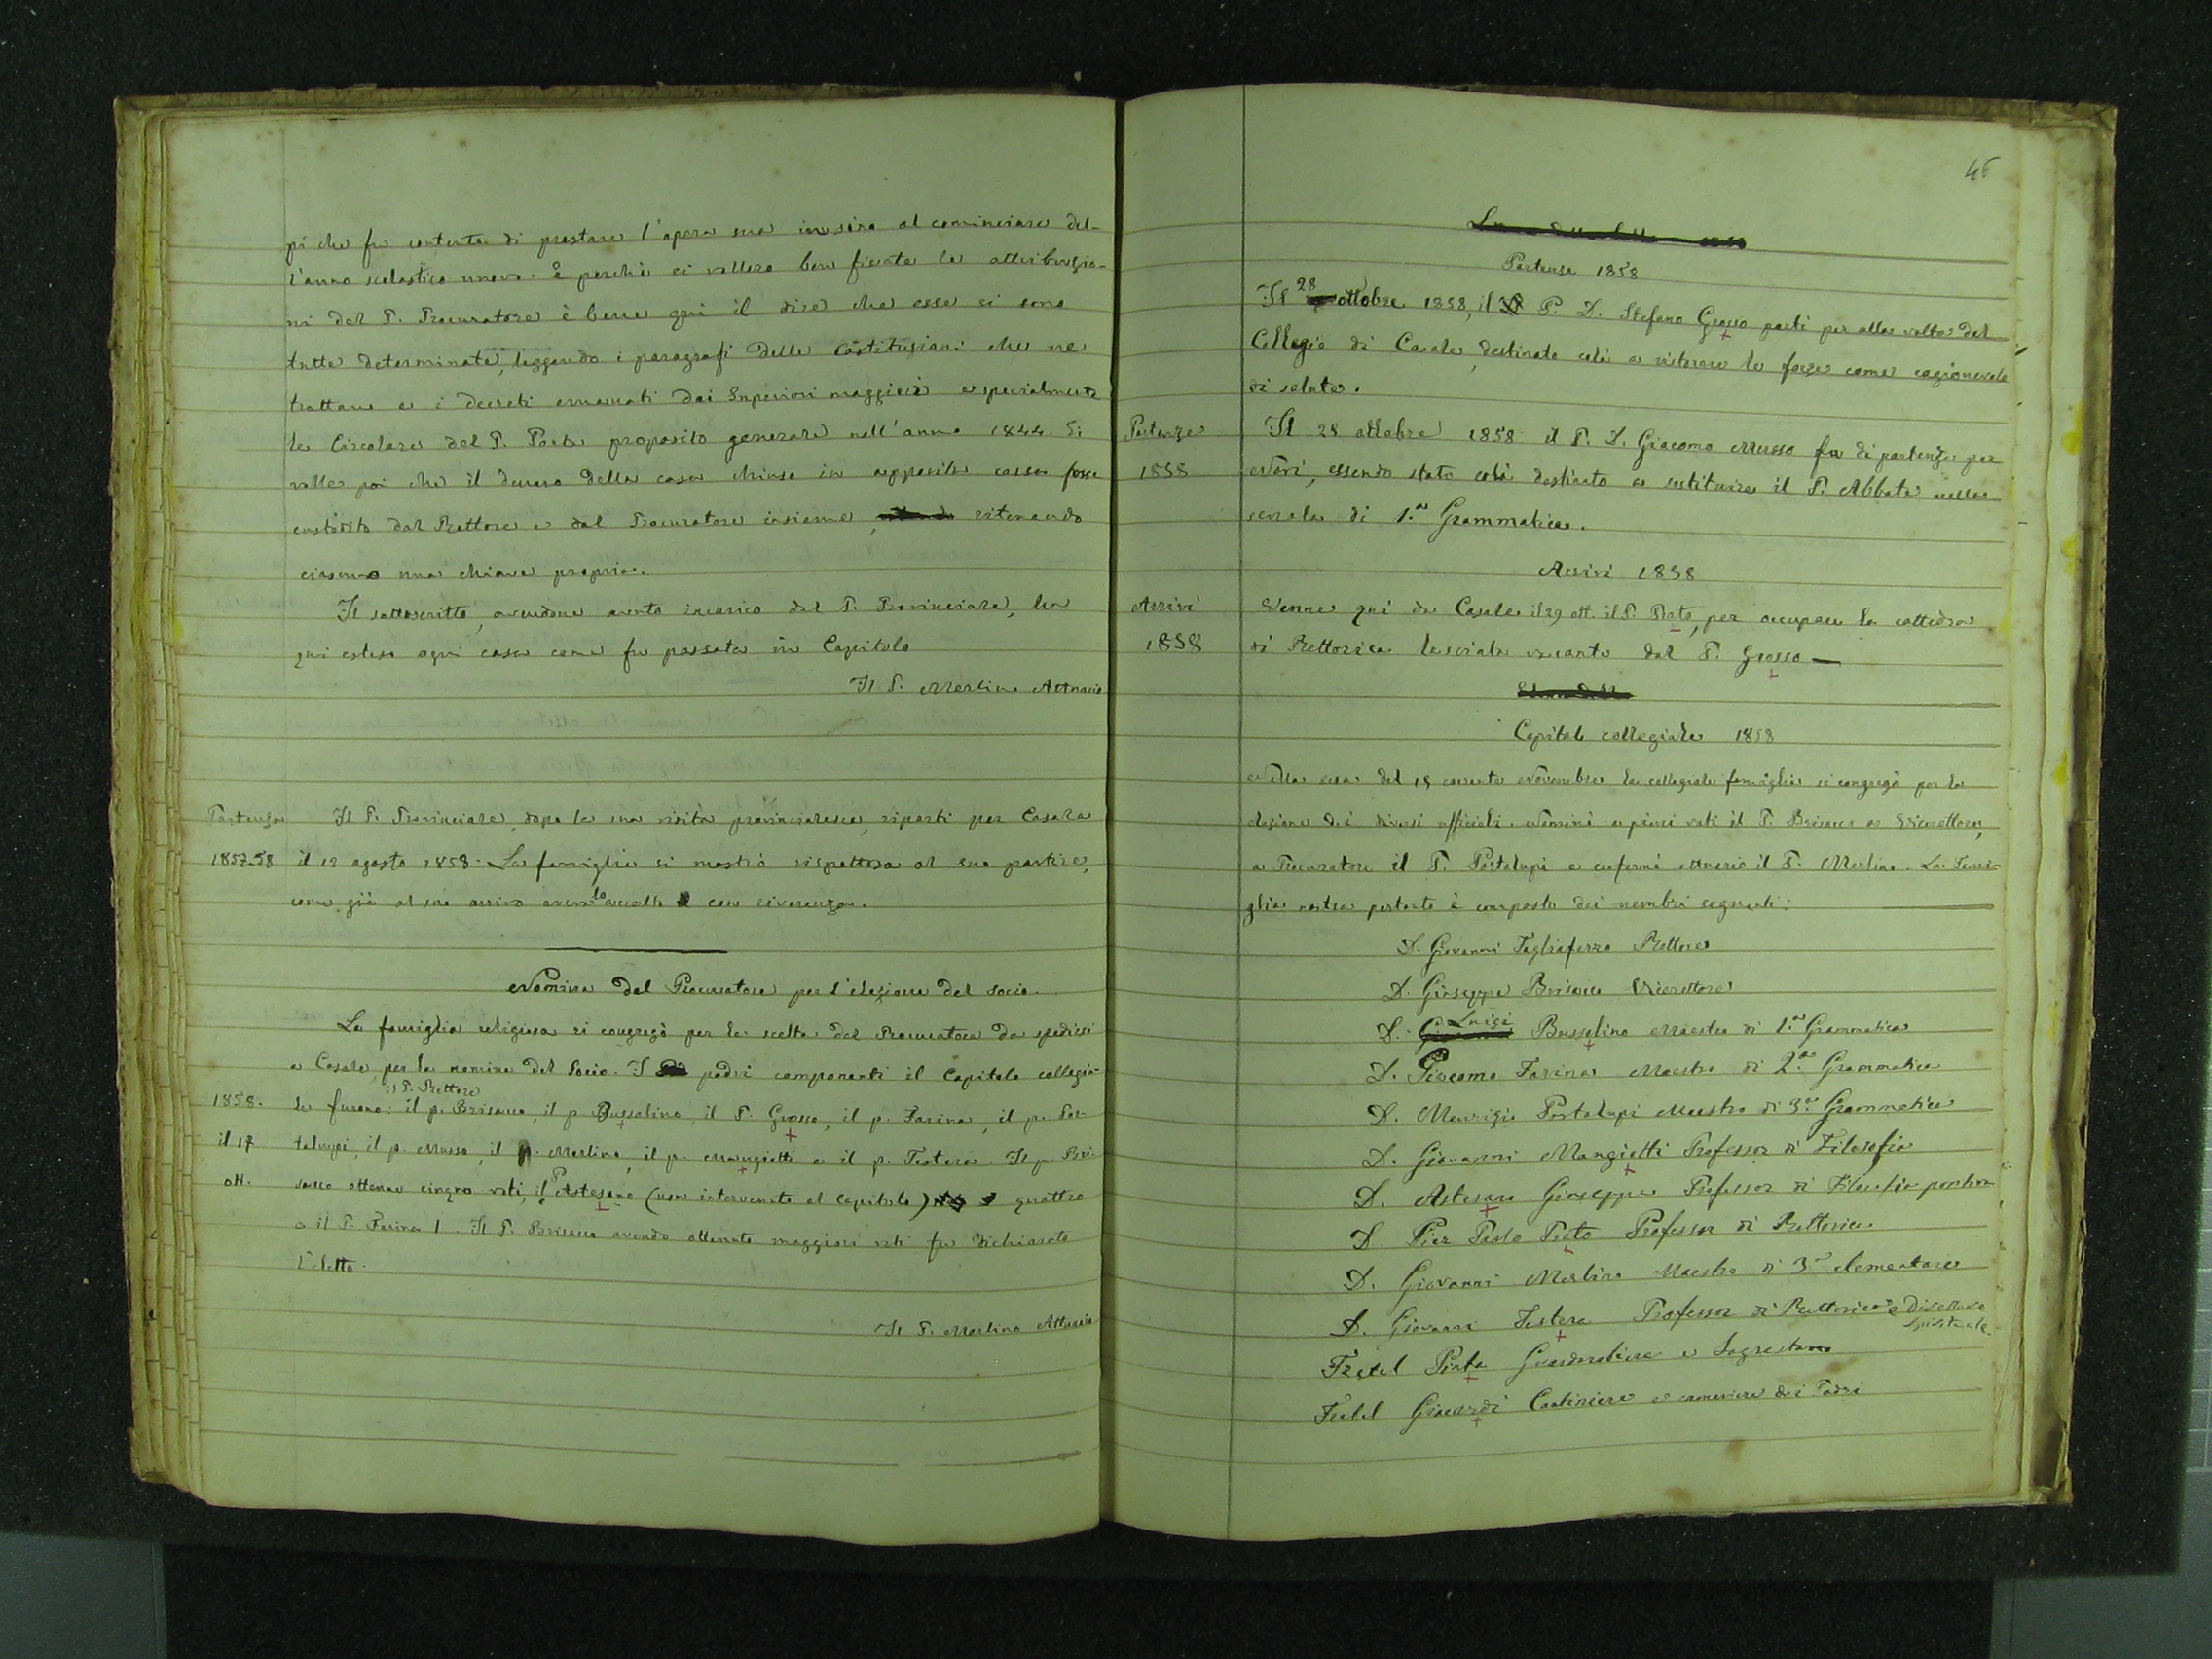 pi che fu contento di prestare l'opera sua insino al cominciare del-
l'anno scolastico nuovo. E perchè si vollero ben fissate le attribuzio-
ni del P. Procuratore è bene qui il dire che esse si sono
tutte determinate, leggendo i paragrafi delle Costituzioni che ne
trattano e i decreti emanati dai Superiori maggiori e specialmente
la Circolare del P. proposito generale nell'anno 1844. Si
volle poi che il denaro della casa chiuso in apposita cassa fosse
custodito dal Rettore e dal Procuratore insieme, ritenendo
ciascuno una chiave propria.
Il sottoscritto, avendone avuto incarico dal P. Provinciale, ha
qui esteso ogni cosa come fu passata in Capitolo
Il P. Merlino Attuario
Partenza
1857-58
Il P. Provinciale, dopo la sua visita provincialesca, ripartì per Casale
il 12 agosto 1858. La famiglia si mostrò rispettosa al suo partire,
come già al suo arrivo aveva lo accolto con riverenza.
Nomina del Procuratore per l'elezione del socio.
La famiglia religiosa si congregò per la scelta del Procuratore da spedirsi
a Casale per la nomina del Socio. I padri componenti il Capitolo collegia-
1858.
il 17
ott.
le furono: il P. Rettore il p. Brisacco, il p. Bussolino, il P. Grosso, il p. Farina, il p. Por-
talupi, il p. Musso, il p. Merlino, il p. Mangiotti e il p. Testera. Il p. Bri-
sacco ottenne cinque voti, il P. Astesano (non intervenuto al Capitolo) quattro
e il P. Farina 1. Il P. Brisacco avendo ottenuto maggiori voti fu dichiarato
l'eletto.
Il P. Merlino Attuario
46
Partenze 1858
Il 28 ottobre 1858, il P. D. Stefano Grosso partì per alla volta del
Collegio di Casale, destinato colà a ristorare le forze come cagionevole
di salute.
Partenze
1858
Il 28 ottobre 1858 il P. D. Giacomo Musso fu di partenza per
Novi, essendo stato colà destinato a sostituire il P. Abbate nella
scuola di 1.a Grammatica.
Arrivi 1858
Arrivi
1858
Venne qui da Casale il 29 ott. il P. Prato, per occupare la cattedra
di Rettorica lasciata vacante dal P. Grosso —
Capitolo collegiale 1858
Nella sera del 15 corrente Novembre la collegiale famiglia si congregò per la
elezione dei diversi ufficiali. Nominò a pieni voti il P. Brisacco a Vicerettore,
a Procuratore il P. Portalupi e confermò attuario il P. Merlino. La Fami-
glia nostra pertanto è composta dei membri seguenti:
D. Giovanni Tagliaferro Rettore
D. Giuseppe Brisacco Vicerettore
D. Luigi Bussolino Maestro di 1.a Grammatica
D. Giacomo Farina Maestro di 2.a Grammatica
D. Maurizio Portalupi Maestro di 3.a Grammatica
D. Giovanni Mangiotti Professor di Filosofia
D. Astesano Giuseppe Professor di Filosofia positiva
D. Pier Paolo Prato Professor di Rettorica
D. Giovanni Merlino Maestro di 3.a elementare
D. Giovanni Testera Professor di Rettorica e Direttore
Spirituale.
Fratel Pinta Guardarobiere e Sagrestano
Fratel Girardi Cantiniere e cameriere dei Padri